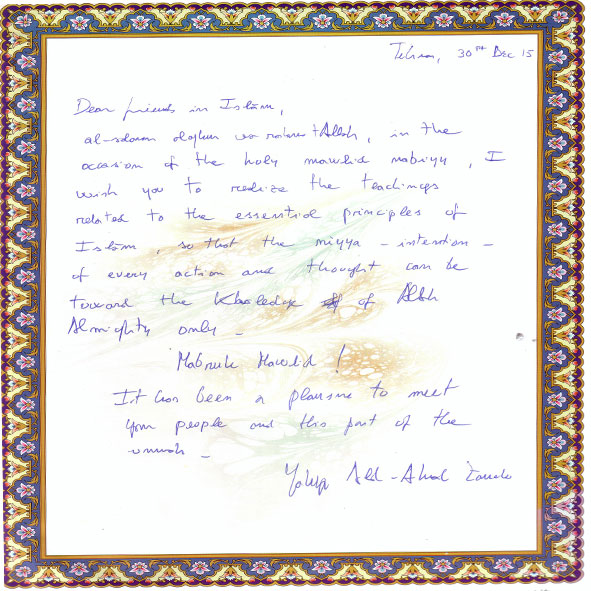 Tehran, 30th Dec 15
Dear friends in Islām,
al-salam alaykum wa rahmatAllah, in the
occasion of the holy mawlid nabiyy, I
wish you to realize the teachings
related to the essential principles of
Islām, so that the niyya - intention -
of every action and thought can be
toward the Knowledge of Allah
Almighty only -
Mabruk Mawlid!
It has been a pleasure to meet
your people and this part of the
ummah -
Yahya Abd-Ahad